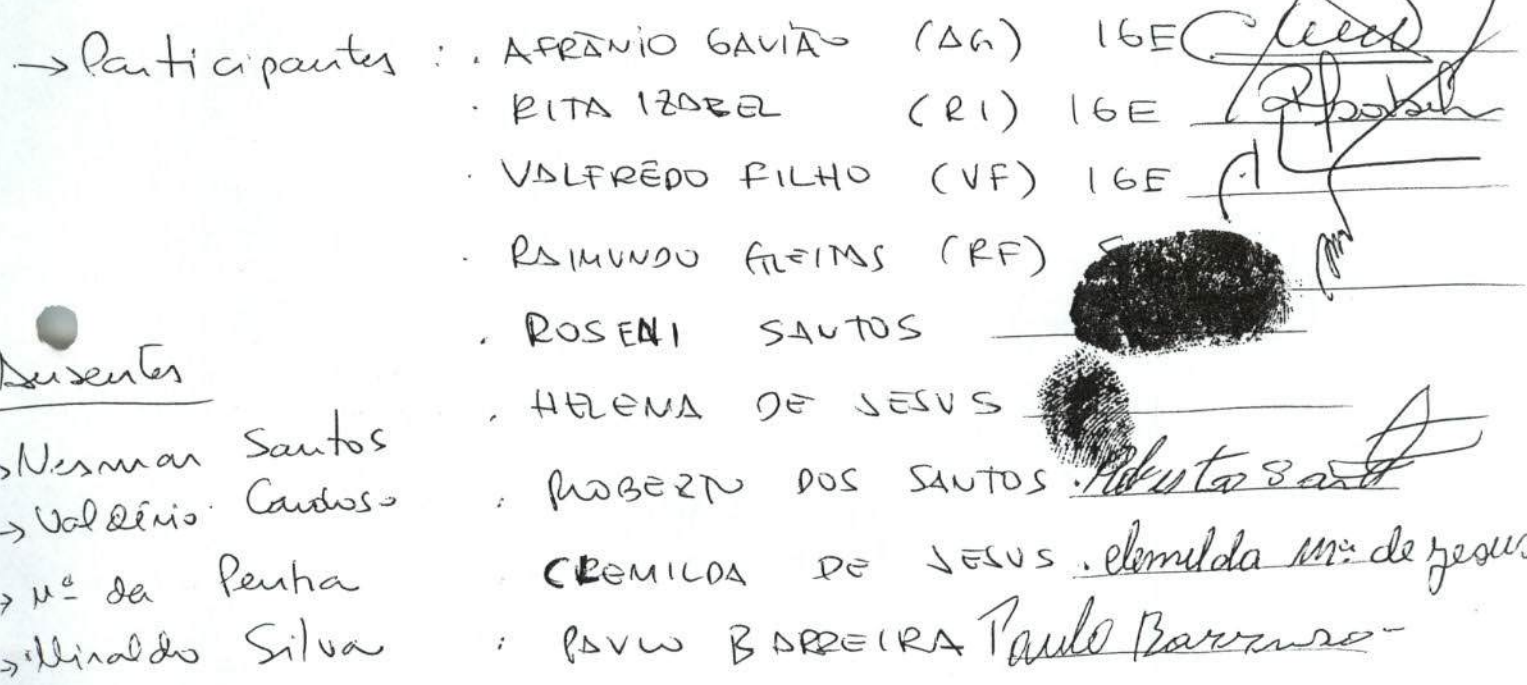 → Participantes : . AFRÂNIO GAVIÃO (AG) IGE
. RITA IZABEL (RI) IGE
. VALFRÊDO FILHO (VF) IGE
. RAIMUNDO FREITAS (RF)
. ROSENI SANTOS
. HELENA DE JESUS
. ROBERTO DOS SANTOS .
CREMILDA DE JESUS . clemilda Mª de Jesus
: PAULO BARREIRA Paulo
Ausentes
→ Santos
→ Valdênio Cardoso
→ Mª da Penha
→ Silva